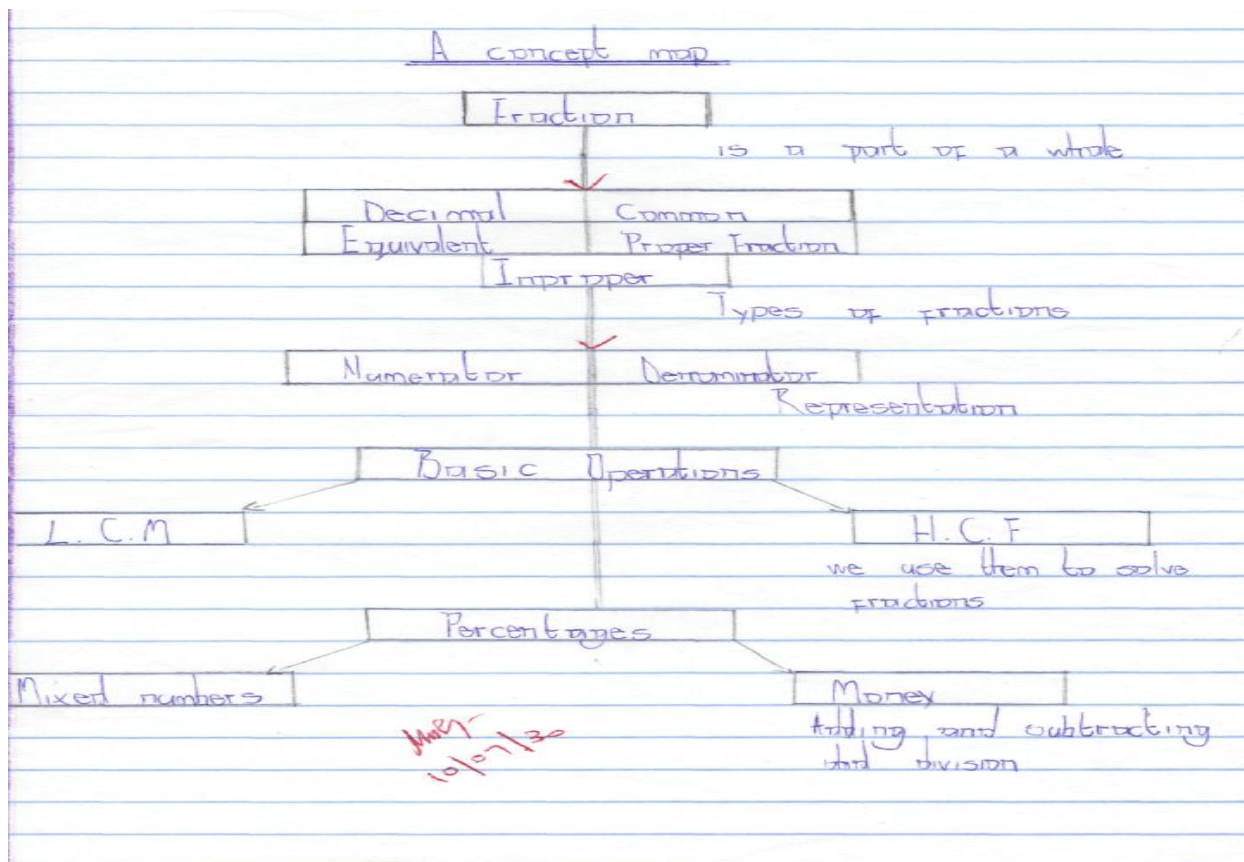 A concept map
Fraction
is a part of a whole
Decimal Common
Equivalent Proper Fraction
Improper
Types of fractions
Numerator Denuminator
Representation
Basic Operations
L. C. M H. C. F
we use them to solve
fractions
Percentages
Mixed numbers Money
Adding and subtracting
and division
10/07/30